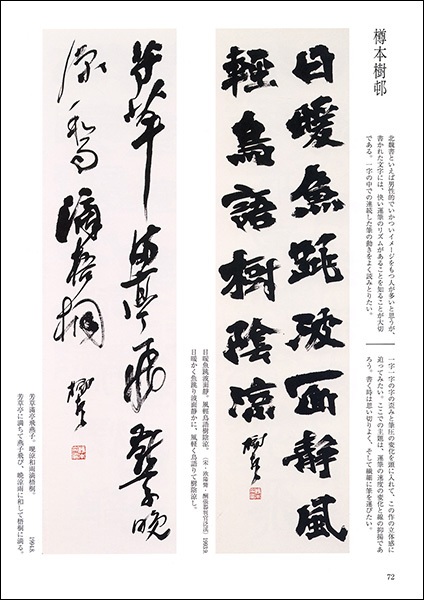 樽本樹邨
北魏書といえば男性的でいかついイメージをもつ人が多いと思うが、
書かれた文字には、快い運筆のリズムがあることを知ることが大切
である。一字の中での連続した筆の動きをよく読みとりたい。
一字一字の字の歪みと筆圧の変化を頭に入れて、この作の立体感に
迫ってみたい。ここでの主題は、運筆の速度の変化と線の抑揚であ
ろう。書く時は思い切りよく、そして繊細に筆を運びたい。
日暖魚跳波面静風
輕鳥語樹陰凉 樹邨
日暖魚跳波面静。風軽鳥語樹陰凉。(宋・欧陽脩・酬張器判官泛渓) 1993.9.
日暖かく魚跳り波面静かに、風軽く鳥語りて樹陰凉し。
芳草満亭飛燕子晩
凉和雨滴梧桐 樹邨
芳草満亭飛燕子。晩涼和雨滴梧桐。
芳草亭に満ちて燕子飛び、晩涼雨に和して梧桐に滴る。 1994.8.
72